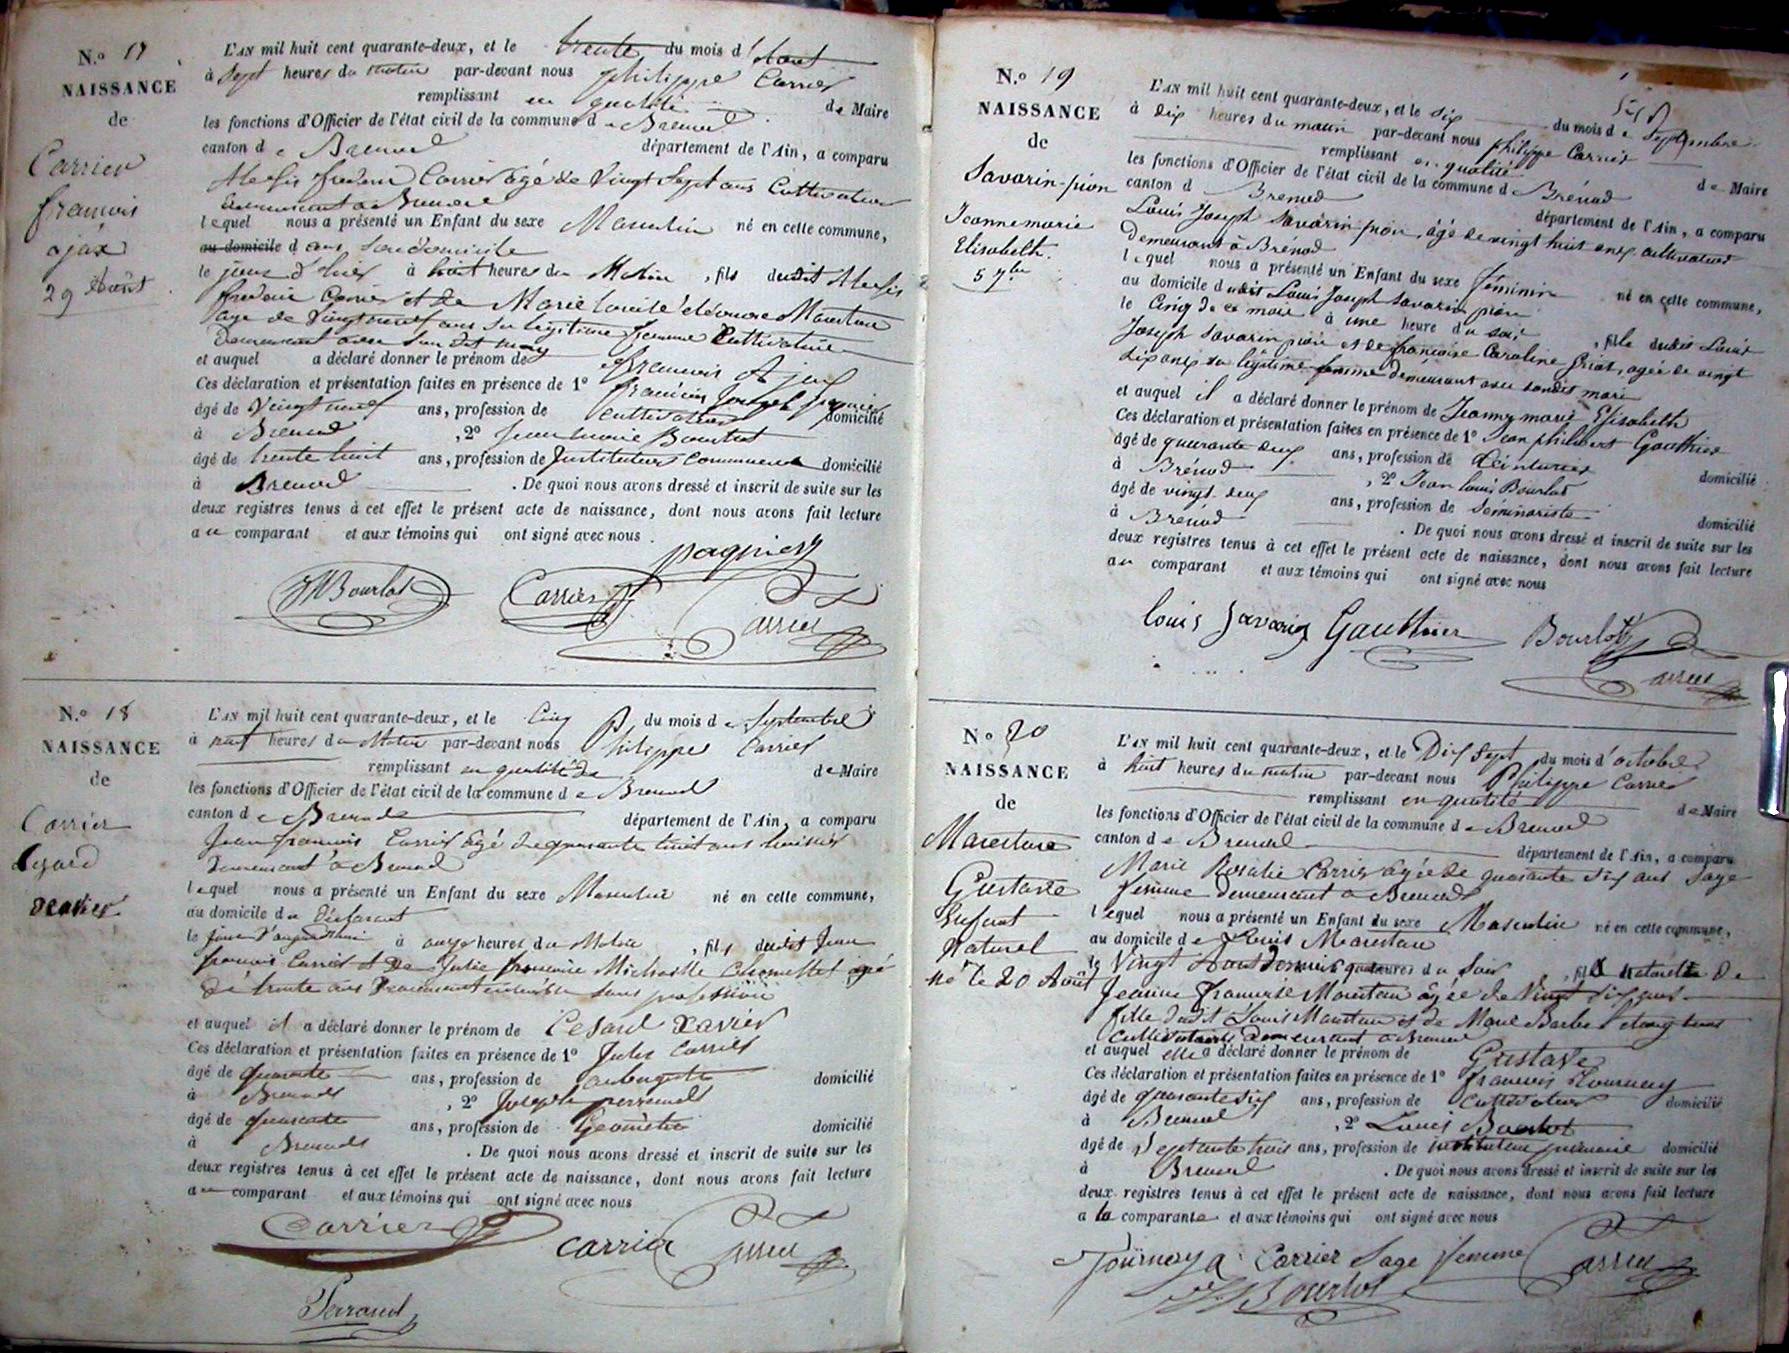 N.o 17
NAISSANCE
de
Carrier
françois
ajax
29 Août
L'AN mil huit cent quarante-deux, et le trente du mois d'Aout
à sept heures du matin par-devant nous philippe Carrier
remplissant en qualité de Maire
les fonctions d'Officier de l'état civil de la commune de Brenod
canton de Brenod département de l'Ain, a comparu
Alexis frederic Carrier âgé de vingt sept ans Cultivateur
demeurant a Brenod
lequel nous a présenté un Enfant du sexe Masculin né en cette commune,
au domicile dans son domicile
le jour d'hier à huit heures du Matin, fils dudit Alexis
frederic Carrier et de Marie Louise éléonore Marestan
agé de vingt neuf ans sa legitime femme Cultivatrice
demeurant avec son dit mary
et auquel a déclaré donner le prénom de françois Ajax
Ces déclaration et présentation faites en présence de 1o francois Joseph pagnier
âgé de vingt neuf ans, profession de cultivateur domicilié
à Brenod, 2o Jean marie Bourlot
âgé de trente huit ans, profession de Instituteur Communal domicilié
à Brenod. De quoi nous avons dressé et inscrit de suite sur les
deux registres tenus à cet effet le présent acte de naissance, dont nous avons fait lecture
au comparant et aux témoins qui ont signé avec nous.
pagnier
JMBourlot Carrier Carrier
N.o 18
NAISSANCE
de
Carrier
Cesard
xavier
L'AN mil huit cent quarante-deux, et le Cinq du mois de Septembre
à neuf heures du Matin par-devant nous Philippe Carrier
remplissant en qualité de de Maire
les fonctions d'Officier de l'état civil de la commune de Brenod
canton de Brenod département de l'Ain, a comparu
Jean francois Carrier âgé de quarante huit ans huissier
demeurant a Brenod
lequel nous a présenté un Enfant du sexe Masculin né en cette commune,
au domicile du déclarant
le jour d'aujourd'hui à onze heures du Matin, fils dudit Jean
francois Carrier et de Julie francoise Michaille Chomettet agé
de trente ans demeurant ensemble sans profession
et auquel il a déclaré donner le prénom de Cesard xavier
Ces déclaration et présentation faites en présence de 1o Jules Carrier
âgé de quarante ans, profession de aubergiste domicilié
à Brenod, 2o Joseph perraud
âgé de quarante ans, profession de Géomètre domicilié
à Brenod. De quoi nous avons dressé et inscrit de suite sur les
deux registres tenus à cet effet le présent acte de naissance, dont nous avons fait lecture
au comparant et aux témoins qui ont signé avec nous
Carrier carrier Carrier
Perraud
N.o 19
NAISSANCE
de
Savarin-pion
Jeannemarie
Elisabeth.
5 7bre
L'AN mil huit cent quarante-deux, et le six du mois de Septembre
à dix heures du matin par-devant nous philippe Carrier
remplissant en qualité de Maire
les fonctions d'Officier de l'état civil de la commune de Brénod
canton d Brenod département de l'Ain, a comparu
Louis Joseph Savarin pion, âgé de vingt huit ans, cultivateur
demeurant à Brénod
lequel nous a présenté un Enfant du sexe féminin né en cette commune,
au domicile dudit Louis Joseph Savarin pion
le cinq de ce mois à une heure du soir, fille dudit Louis
Joseph Savarin pion et de françoise Caroline Griot, agée de vingt
six ans sa légitime femme demeurant avec sondit mari
et auquel il a déclaré donner le prénom de Jeanne marie Elisabeth
Ces déclaration et présentation faites en présence de 1o Jean philibert Gauthier
âgé de quarante deux ans, profession de Teinturier domicilié
à Brénod, 2o Jean Louis Bourlot
âgé de vingt-deux ans, profession de Séminariste domicilié
à Brénod. De quoi nous avons dressé et inscrit de suite sur les
deux registres tenus à cet effet le présent acte de naissance, dont nous avons fait lecture
au comparant et aux témoins qui ont signé avec nous
louis Savarin Gauthier Bourlot
Carrier
No 20
NAISSANCE
de
Marestan
Gustave
Enfant
Naturel
né le 20 Août
L'AN mil huit cent quarante-deux, et le Dix Sept du mois d'octobre
à huit heures du matin par-devant nous Philippe Carrier
remplissant en qualité de Maire
les fonctions d'Officier de l'état civil de la commune de Brenod
canton de Brenod département de l'Ain, a comparu
Marie Rosalie Carrier agée de quarante six ans Sage
femme demeurant a Brenod
lequel nous a présenté un Enfant du sexe Masculin né en cette commune,
au domicile de Louis Marestan
le Vingt Aout dernier heures du Soir, fils Naturel de
Jeanne Francoise Marestan âgée de Vingt six ans
fille dudit Louis Marestan et de Marie Barbe
Cultivateurs demeurant a Brenod
et auquel elle a déclaré donner le prénom de Gustave
Ces déclaration et présentation faites en présence de 1o francois Tournay
âgé de quarante six ans, profession de Cultivateur domicilié
à Brenod, 2o Louis Bourlot
âgé de Septante trois ans, profession de instituteur primaire domicilié
à Brenod. De quoi nous avons dressé et inscrit de suite sur les
deux registres tenus à cet effet le présent acte de naissance, dont nous avons fait lecture
a la comparante et aux témoins qui ont signé avec nous
Tournay Carrier Sage femme Carrier
Bourlot